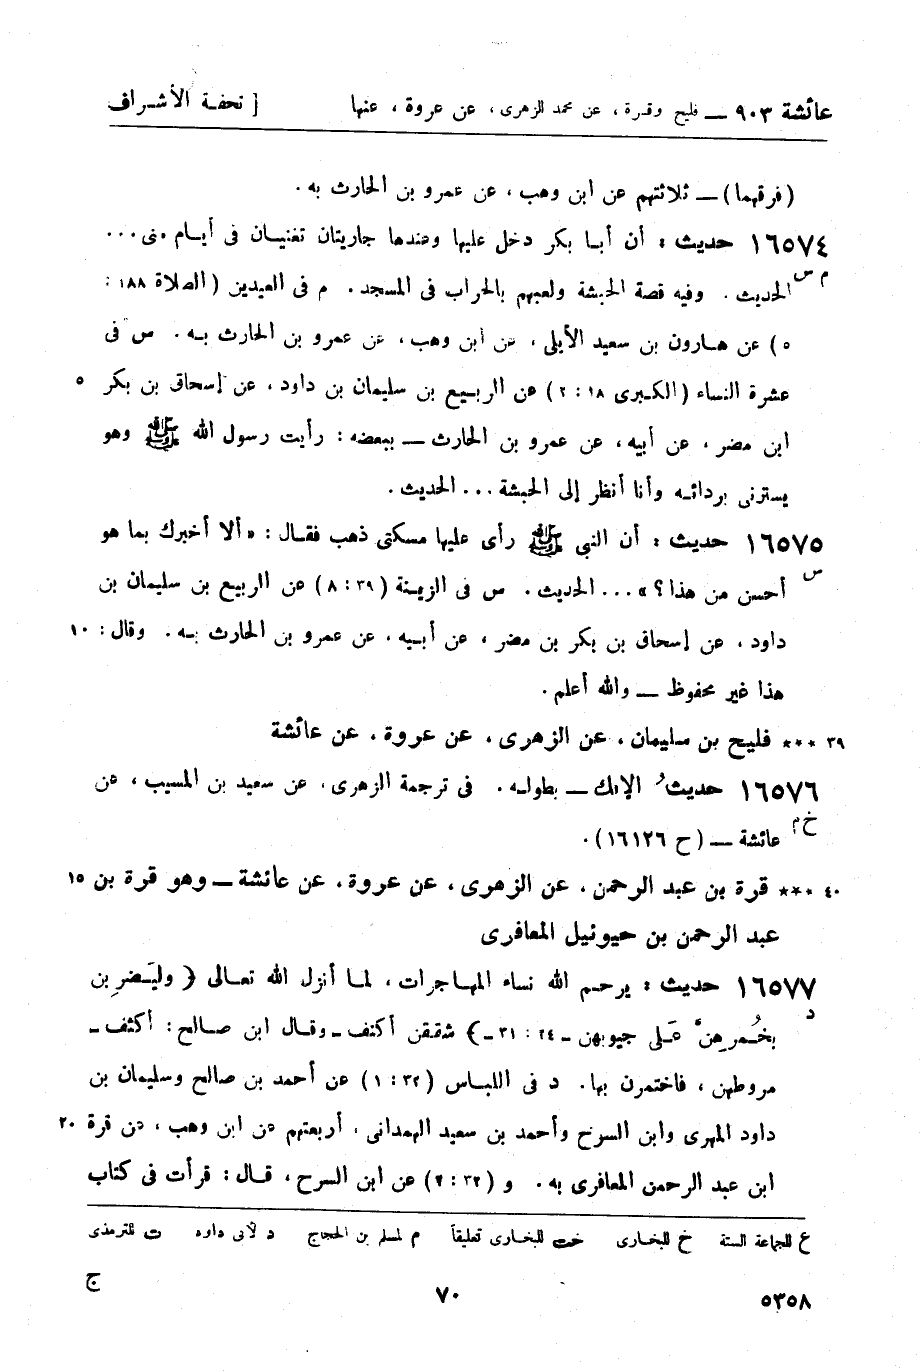 عائشة ٩٠٣ — فليح وقرة ، عن محمد الزهرى ، عن عروة ، عنها [ تحفة الأشراف
(فرقهما) — ثلاثتهم عن ابن وهب ، عن عمرو بن الحارث به .
١٦٥٧٤ حديث : أن أبا بكر دخل عليها وعندها جاريتان تغنيان فى أيام منى ...
م س الحديث . وفيه قصة الحبشة ولعبهم بالحراب فى المسجد . م فى العيدين (الصلاة ١٨٨ :
٥) عن هارون بن سعيد الأيلى ، عن ابن وهب ، عن عمرو بن الحارث به . س فى
عشرة النساء (الكبرى ١٨ : ٢) عن الربيع بن سليمان بن داود ، عن إسحاق بن بكر ٥
ابن مضر ، عن أبيه ، عن عمرو بن الحارث — ببعضه : رأيت رسول الله ﷺ وهو
يسترنى بردائه وأنا أنظر إلى الحبشة ... الحديث .
١٦٥٧٥ حديث : أن النبى ﷺ رأى عليها مسكتى ذهب فقال : «ألا أخبرك بما هو
س أحسن من هذا ؟» ... الحديث . س فى الزينة (٣٩ : ٨) عن الربيع بن سليمان بن
داود ، عن إسحاق بن بكر بن مضر ، عن أبيه ، عن عمرو بن الحارث به . وقال : ١٠
هذا غير محفوظ — والله أعلم .
٣٩ *** فليح بن سليمان ، عن الزهرى ، عن عروة ، عن عائشة
١٦٥٧٦ حديثُ الإفك — بطوله . فى ترجمة الزهرى ، عن سعيد بن المسيب ، عن
خ م عائشة — (ح ١٦١٢٦) .
٤٠ *** قرة بن عبد الرحمن ، عن الزهرى ، عن عروة ، عن عائشة — وهو قرة بن ١٥
عبد الرحمن بن حيوئيل المعافرى
١٦٥٧٧ حديث : يرحم الله نساء المهاجرات ، لما أنزل الله تعالى {وليَضربن
د بخُمرِهنَّ عَلى جيوبهن - ٢٤ : ٣١ -} شققن أكنف - وقال ابن صالح : أكثف -
مروطهن ، فاختمرن بها . د فى اللباس (٣٢ : ١) عن أحمد بن صالح وسليمان بن
داود المهرى وابن السرح وأحمد بن سعيد الهمدانى ، أربعتهم عن ابن وهب ، عن قرة ٢٠
ابن عبد الرحمن المعافرى به . و (٣٢ : ٢) عن ابن السرح ، قال : قرأت فى كتاب
ع للجماعة الستة خ للبخارى خت للبخارى تعليقاً م لمسلم بن الحجاج د لأبى داود ت للترمذى
٥٣٥٨ ٧٠ ج